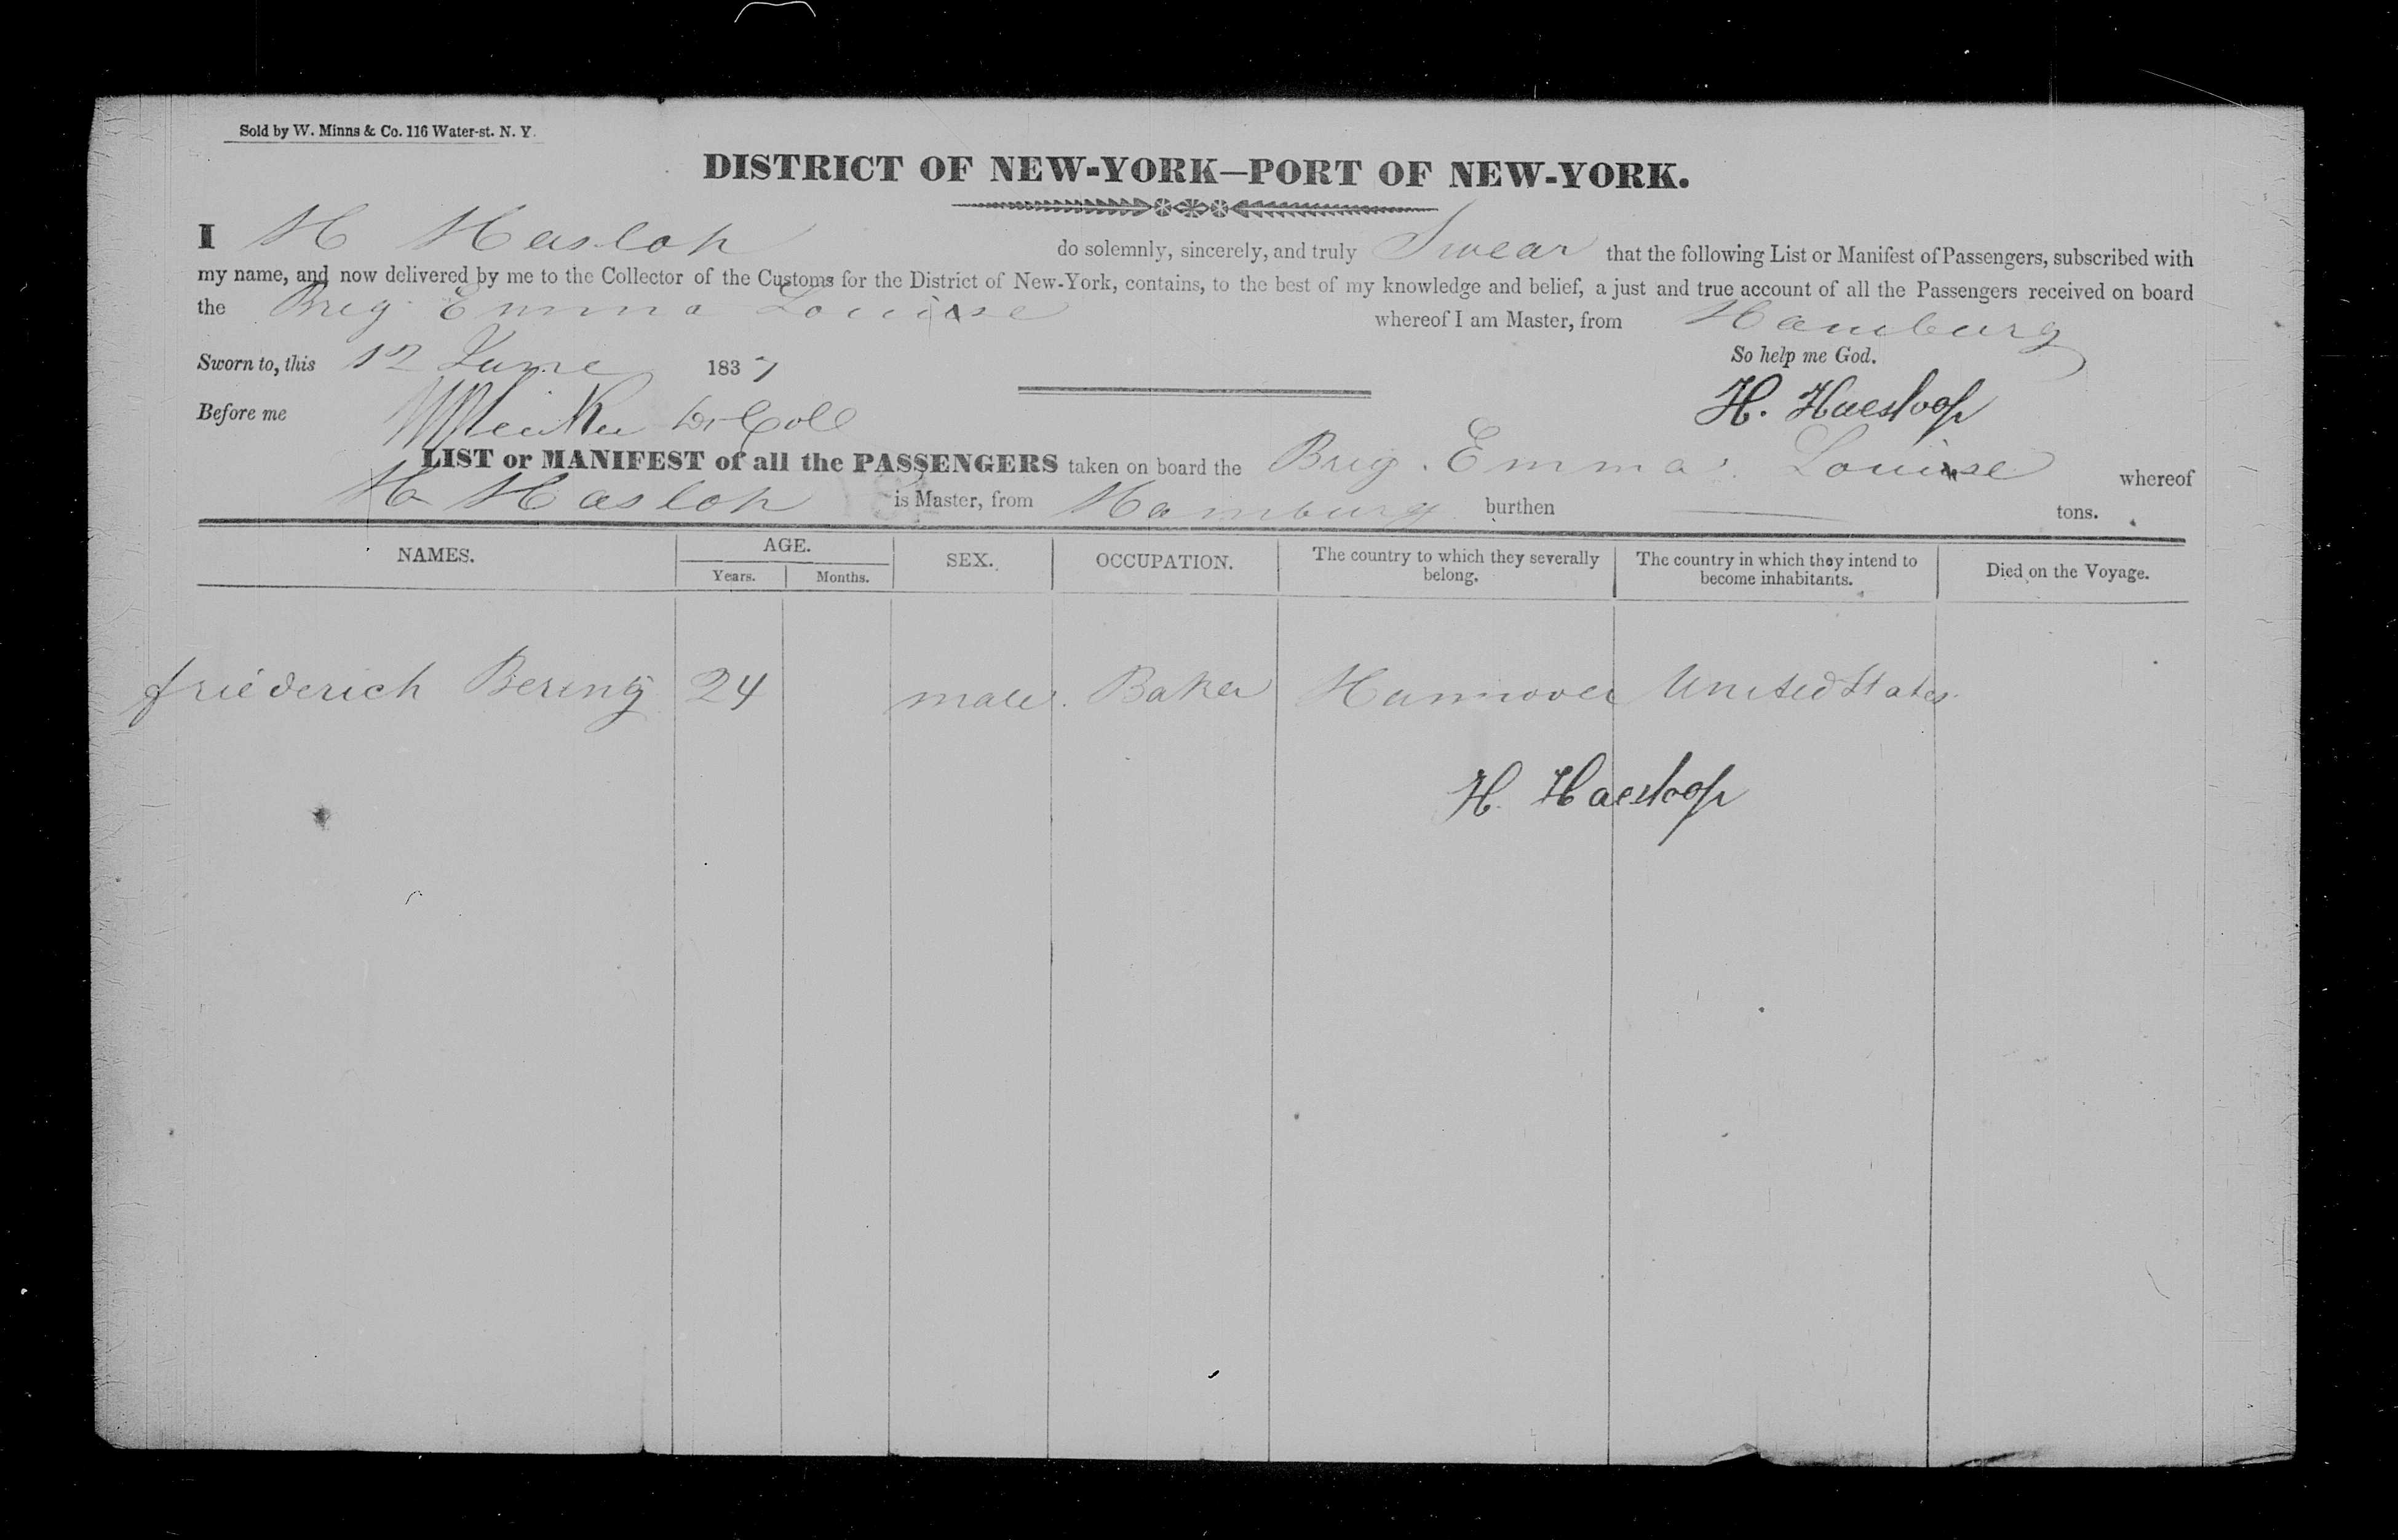 Sold by W. Minns & Co. 116 Water-st. N. Y.
DISTRICT OF NEW-YORK—PORT OF NEW-YORK.
I H Hasloh do solemnly, sincerely, and truly Swear that the following List or Manifest of Passengers, subscribed with
my name, and now delivered by me to the Collector of the Customs for the District of New-York, contains, to the best of my knowledge and belief, a just and true account of all the Passengers received on board
the Brig Emma Louise whereof I am Master, from Hamburg
Sworn to, this 12 June 1837 So help me God.
Before me H. Haesloop
LIST or MANIFEST of all the PASSENGERS taken on board the Brig. Emma Louise whereof
H Hasloh is Master, from Hamburg burthen — tons.
NAMES. AGE. Years. Months. SEX. OCCUPATION. The country to which they severally belong. The country in which they intend to become inhabitants. Died on the Voyage.
friederich Bering 24 male. Baker Hannover United States.
H. Haesloop